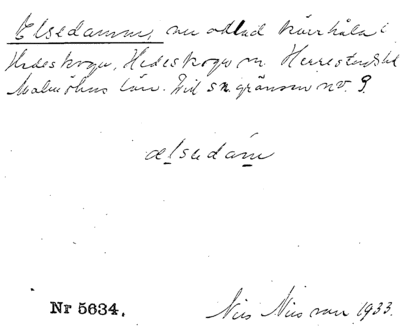 Elsedammen, nu odlad kärrhåla i
Hedeskoga, Hedeskoga sn. Herrestads hd
Malmöhus län. Vid sn. gränsen nv. 9.
ælsedám
Nr 5634. Nils Nilsson 1933.